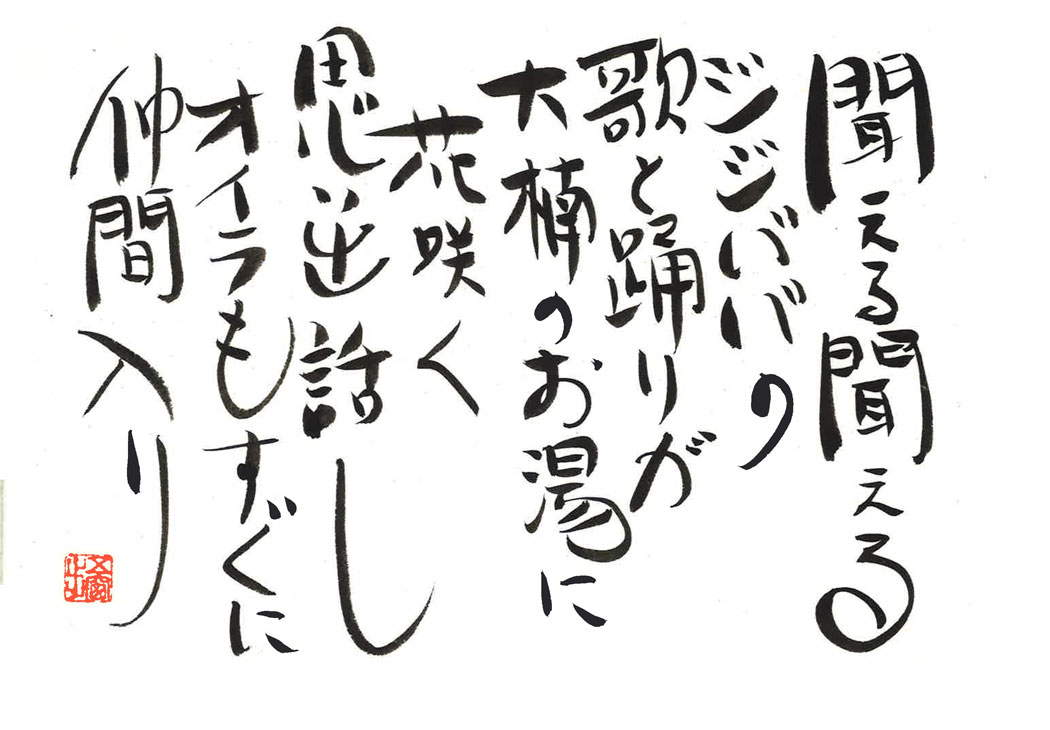 聞える聞える
ジジババの
歌と踊りが
大楠のお湯に
花咲く
思い出話し
オイラもすぐに
仲間入り